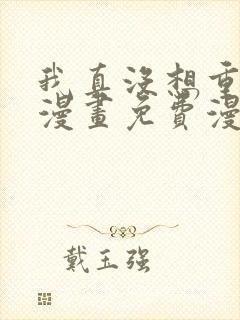 我真没想重
漫畫免費漫
戴玉强